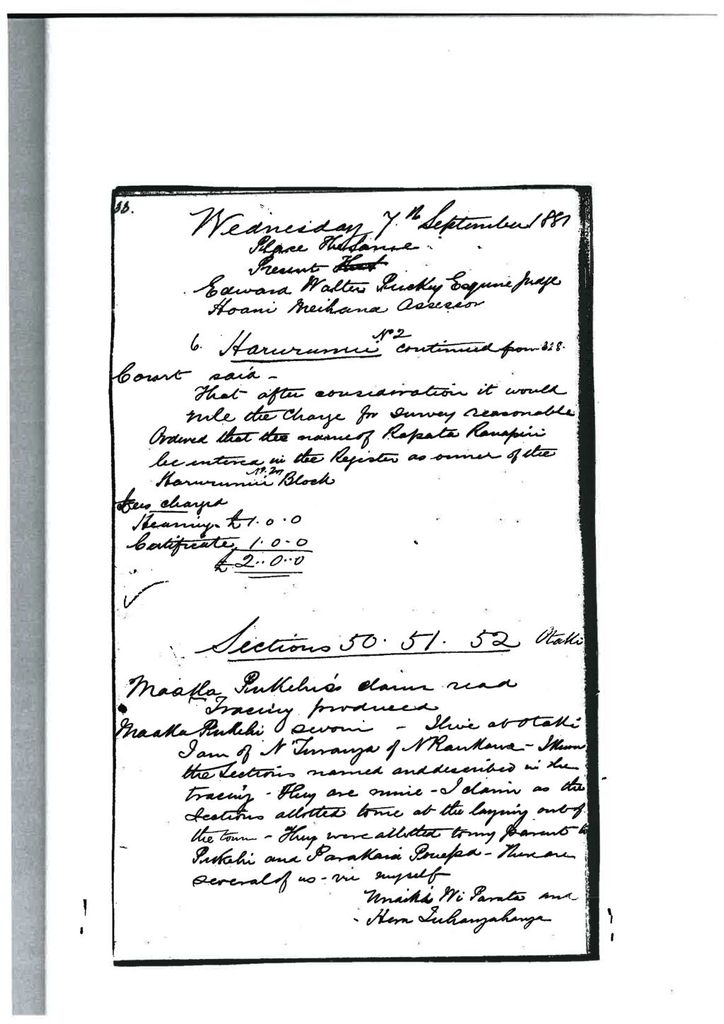 33.
Wednesday 7th September 1881
Place The Same
Present
Edward Walter Puckey Esquire Judge
Hoani Meihana Assessor
6. Harurunui No 2 continued from 328.
Court said -
That after consideration it would
rule the charge for survey reasonable
Ordered that the name of Ropata Ranapiri
be entered in the Register as owner of the
Harurunui No. 2 Block
Fees charged
Hearing £1.0.0
Certificate 1.0.0
£2..0..0
Sections 50. 51. 52 Otaki
Pukehi's claim read
Tracing produced
Pukehi sworn - I live at Otaki
I am of N of N Raukawa - I know
the Sections named and described in the
tracing - They are mine - I claim as the
Sections allotted to me at the laying out of
the town - They were allotted to my parent
Pukehi and Parakaia Pouepa - There are
several of us - viz myself
Wi Parata and
Hera Tuhangahanga